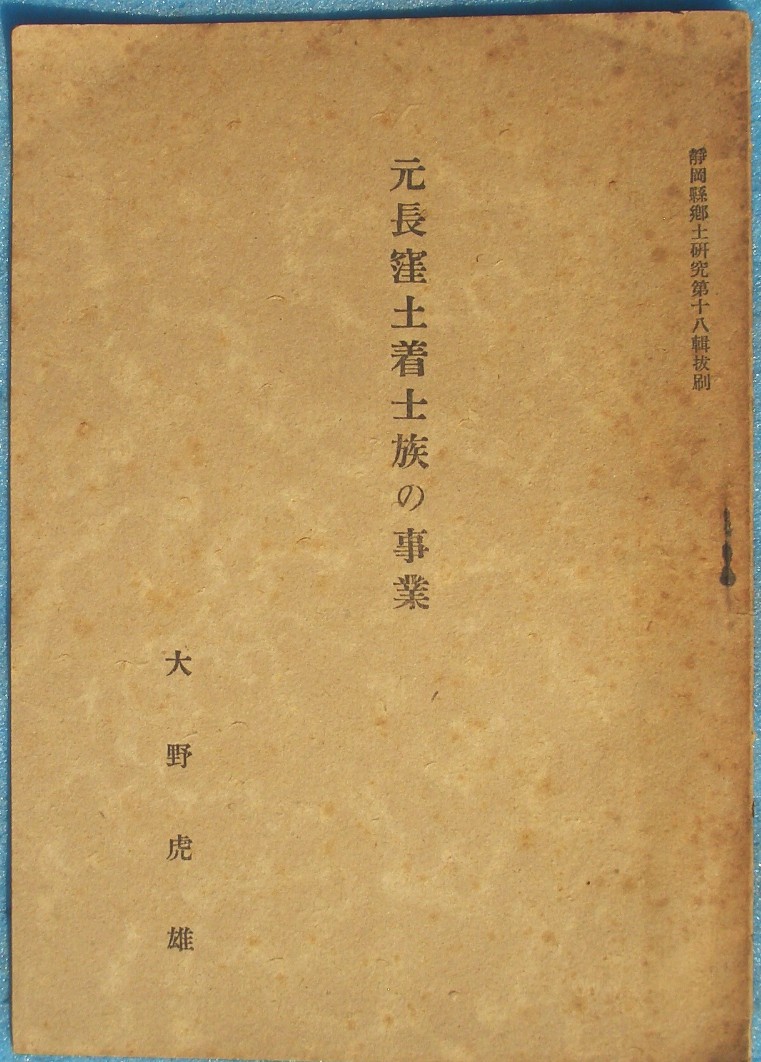 靜岡縣鄕土硏究第十八輯拔刷
元長窪土着士族の事業
大野虎雄